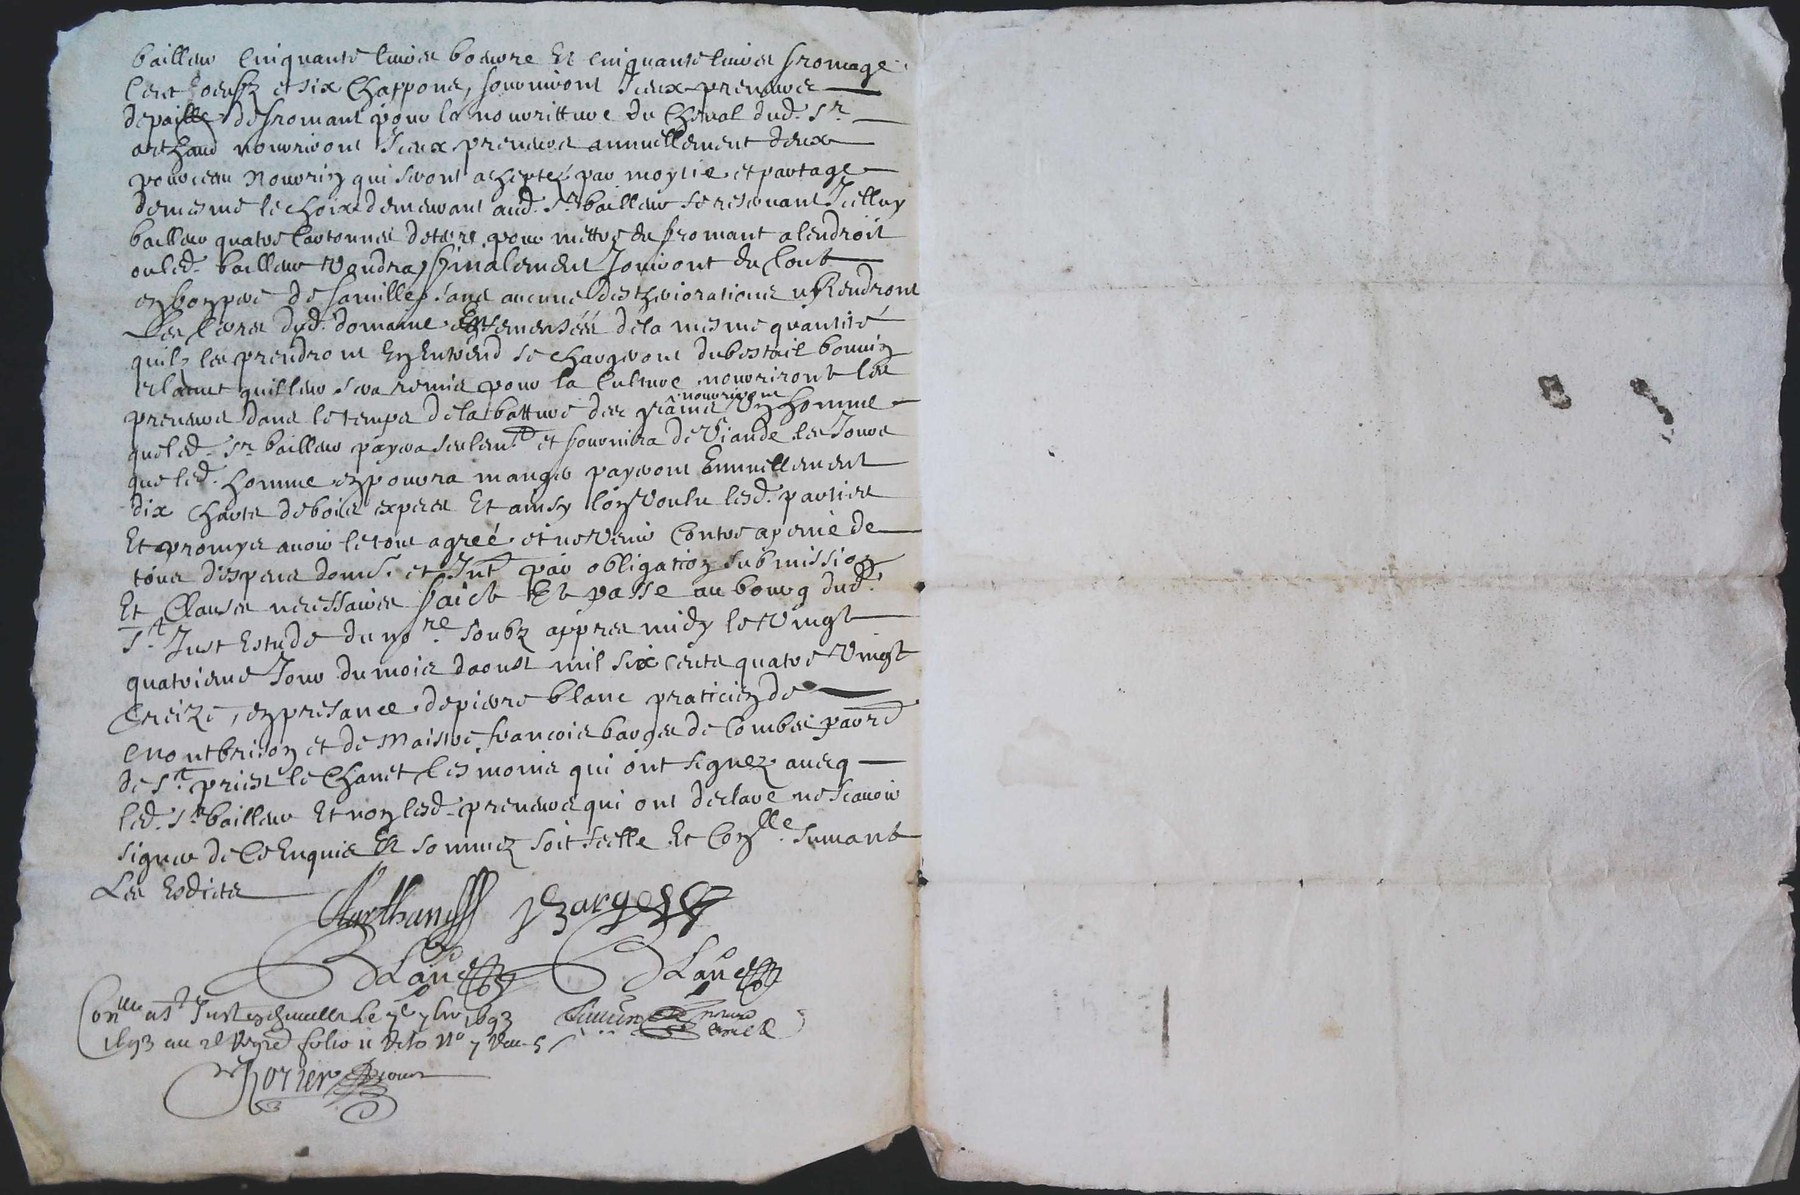 bailleur cinquante livres beurre Et cinquante livres fromage
Cent oeufz et six Chappons, fourniront Iceux preneurs
de paille de fromant pour la nourritture du Cheval dud. Sr
arthaud nourriront Iceux preneurs annuellement deux
pourceau Nourrin qui seront acheptéz par moytié et partagé
de mesme le choix demeurant aud. Sr bailleur se reservant Icelluy
bailleur quatre Cartonnes de terre pour mettre du fromant a lendroit
ou led. bailleur voudra, finalement Jouiront du tout
en bon pere de famille sans aucune destheriorations Rendront
Les terres dud. domaine Ensemensées de la mesme quantité
quilz les prendront En Entrend se chargeront du bestail bouvin
quil leur sera remis pour la Culture nourriront les
preneurs dans le temps de la batture des grains Un homme
nourriront
que led. Sr bailleur payera seulemt et fournira de Viande les Jours
que led. homme en pourra manger payeront Ennuellement
dix chars de bois expres Et ainsy lont Voulu lesd. parties
Et promys avoir le tout agreé et ne venir Contre a peine de
tous despens dom. et Int. par obligation submission
Et Clauses necessaires faict Et passé au bourg dud.
St Just Estude du nore soubz. appres midy le Vingt
quatrieme Jour du mois daoust mil six cents quatre Vingt
treize, en presance de pierre blanc praticien de
Montbrison et de Maistre francois barges de Combes
de St priest le Chanet tesmoins qui ont signez avecq
led. Sr bailleur Et non lesd. preneurs qui ont declaré ne scavoir
signer de Ce Enquis Et sommez soit scelle Et Conlle. suivant
Les Edictz
Arthaud Barges
Blanc Blanc
Conllé a St Just en chevallet le 7e 7bre 1693
1693 au folio 11 No 7